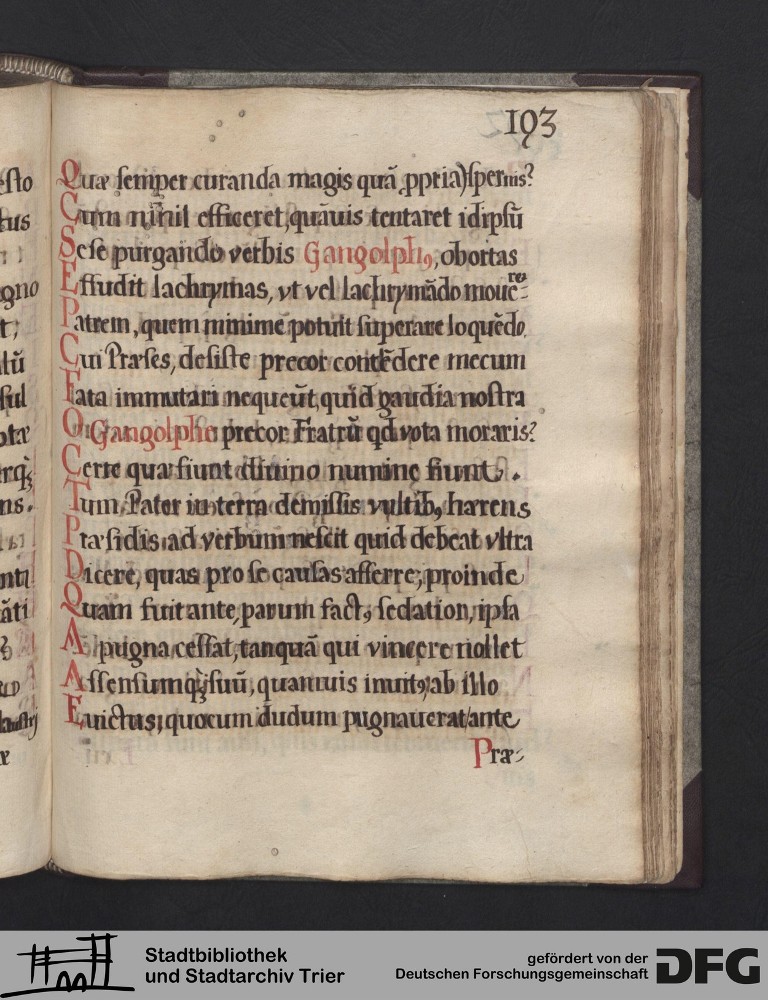 193
Quæ semper curanda magis quã ꝓpria) spernis?
Cum nihil efficeret, quãuis tentaret idipsũ
Sese purgando verbis Gangolphꝰ, obortas
Effudit lachrymas, vt vel lachrymãdo mouẽ-
ret
Patrem, quem minime potuit superare loquẽdo.
Cui Præses, desiste precor contẽdere mecum
Fata immutari nequeũt, quid gaudia nostra
O Gangolphe precor Fratrũ qd vota moraris?
Certe quæ fiunt diuino numine fiunt.
Tum Pater in terra demissis vultibꝰ hærens
Præsidis ad verbum nescit quid debeat vltra
Dicere, quas pro se causas afferre; proinde
Quam fuit ante, parum factꝰ sedatior, ipsa
A pugna cessat, tanquã qui vincere nollet
Assensumqꝫ suũ, quamuis inuitꝰ, ab illo
Euictus, quocum dudum pugnauerat, ante
Præ-
esto
tus
gno
t,
sul
ns.
nti
ãti
Stadtbibliothek
und Stadtarchiv Trier
gefördert von der
Deutschen Forschungsgemeinschaft
DFG